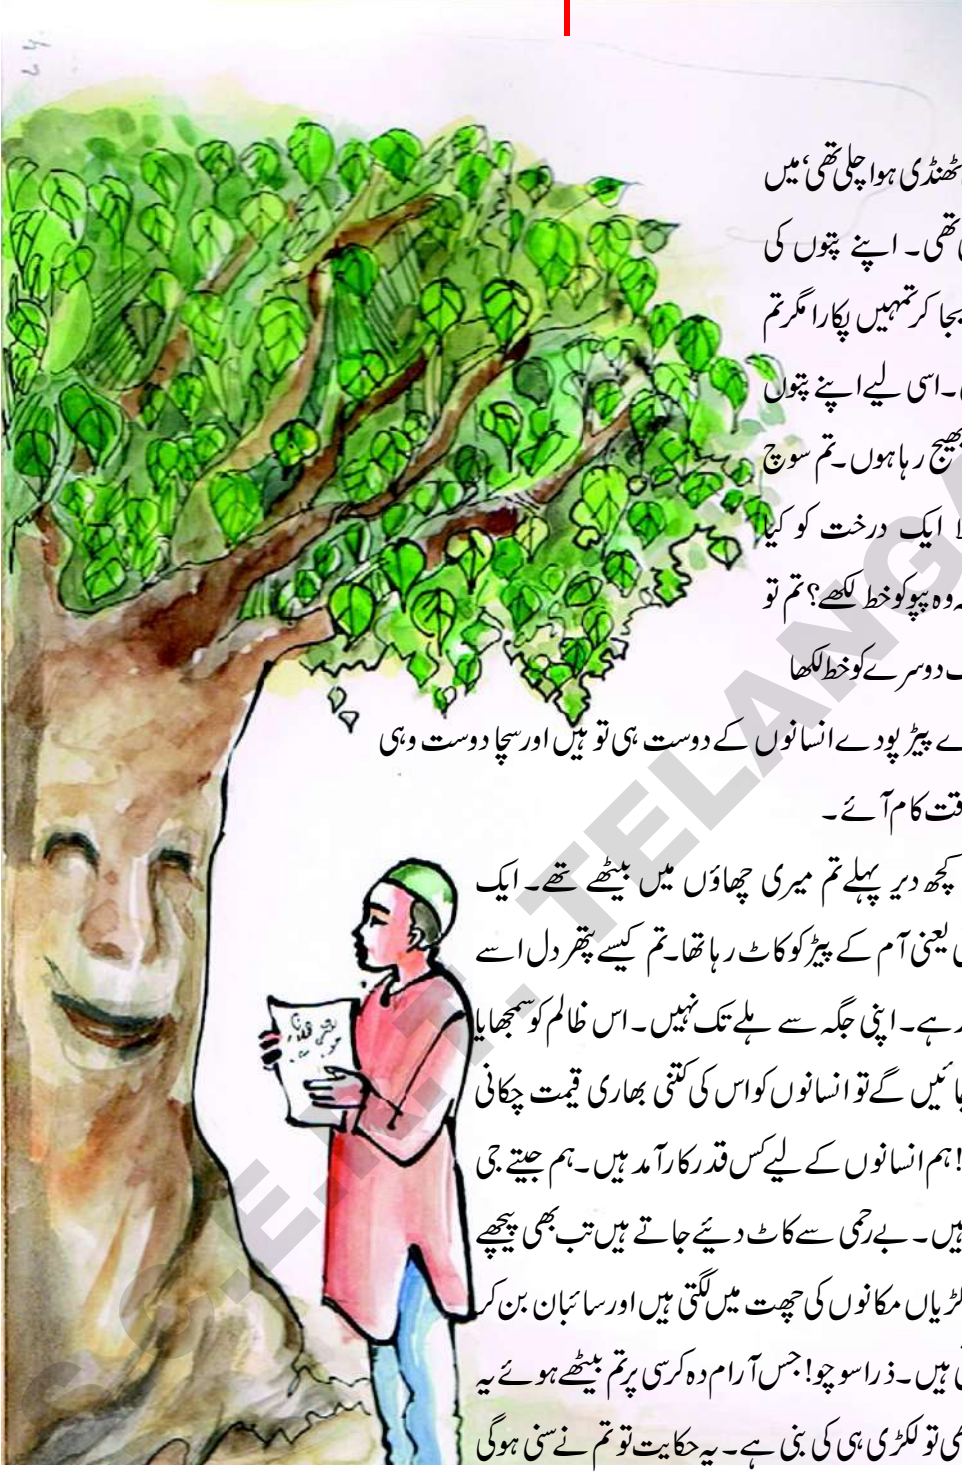 ٹھنڈی ہوا چلی تھی، میں
تھی۔ اپنے پتوں کی
بجا کر تمہیں پکارا مگر تم
۔ اسی لیے اپنے پتوں
بھیج رہا ہوں۔ تم سوچ
ایک درخت کو کیا
وہ پپو کو خط لکھے؟ تم تو
دوسرے کو خط لکھا
پیڑ پودے انسانوں کے دوست ہی تو ہیں اور سچا دوست وہی
کام آئے۔
کچھ دیر پہلے تم میری چھاؤں میں بیٹھے تھے۔ ایک
یعنی آم کے پیڑ کو کاٹ رہا تھا۔ تم کیسے پتھر دل اسے
رہے۔ اپنی جگہ سے ہلے تک نہیں۔ اس ظالم کو سمجھایا
جائیں گے تو انسانوں کو اس کی کتنی بھاری قیمت چکانی
! ہم انسانوں کے لیے کس قدر کار آمد ہیں۔ ہم جیتے جی
ہیں۔ بے رحمی سے کاٹ دیئے جاتے ہیں تب بھی پیچھے
مکانوں کی چھت میں لگتی ہیں اور سائبان بن کر
ہیں۔ ذرا سوچو! جس آرام دہ کرسی پر تم بیٹھے ہوئے یہ
تو لکڑی ہی کی بنی ہے۔ یہ حکایت تو تم نے سنی ہوگی